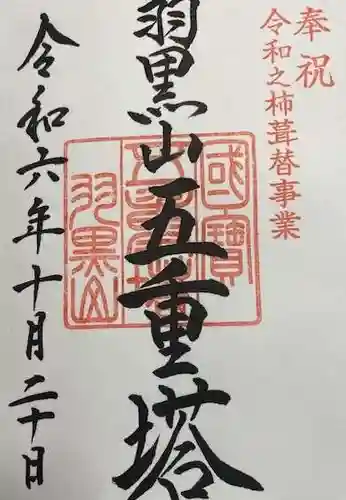 奉祝
令和之杮葺替事業
羽黒山五重塔
國寶
五重塔
羽黒山
令和六年十月二十日